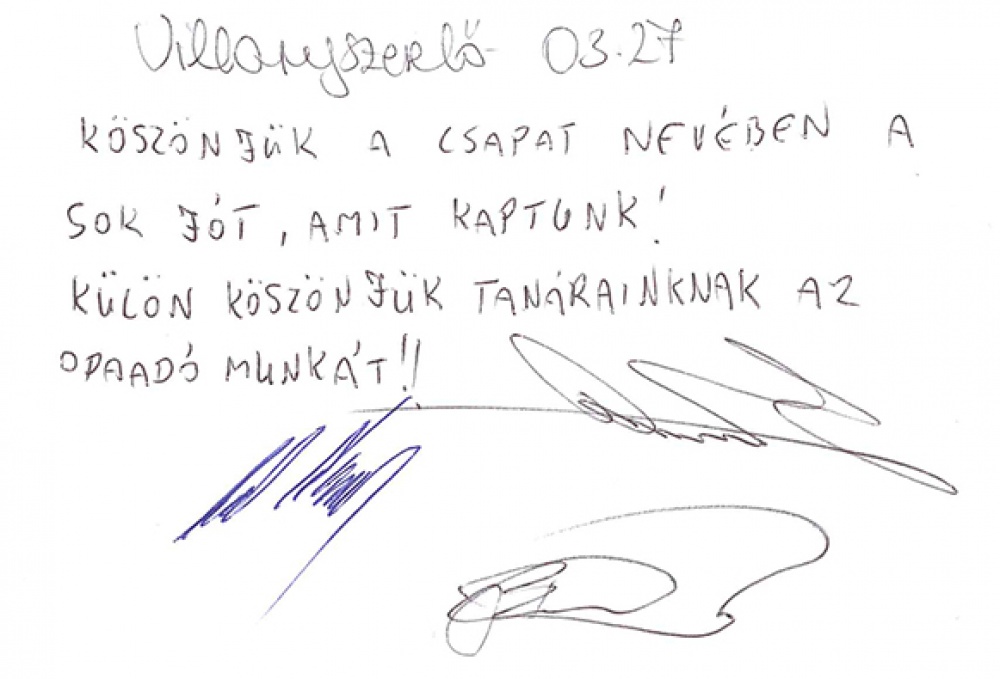 Villanyszerlő 03.27
KÖSZÖNJÜK A CSAPAT NEVÉBEN A
SOK JÓT, AMIT KAPTUNK!
KÜLÖN KÖSZÖNJÜK TANÁRAINKNAK AZ
ODAADÓ MUNKÁT!!